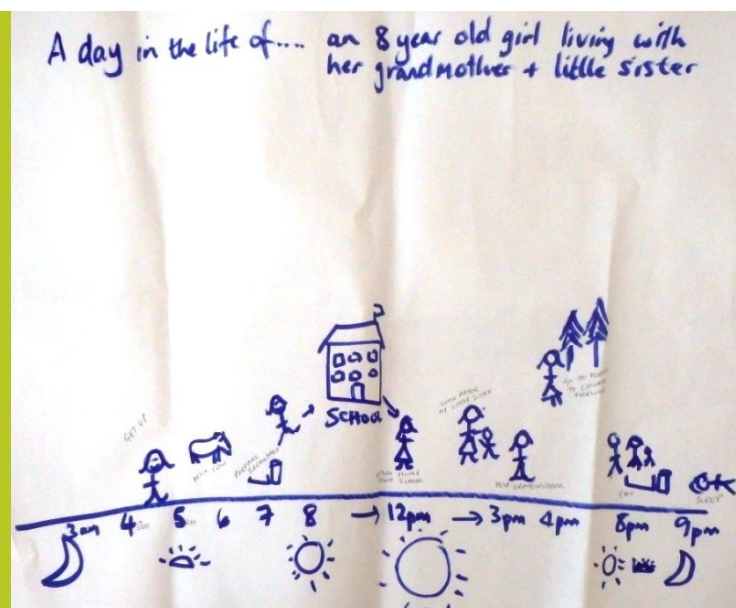 A day in the life of.... an 8 year old girl living with
her grandmother + little sister
GET UP
MILK COW
PREPARE BREAKFAST
SCHOOL
LOOK AFTER
MY LITTLE SISTER
HELP GRANDMOTHER
GO TO FOREST
TO COLLECT
FIREWOOD
EAT
SLEEP
3am 4am 5am 6 7 8 → 12pm → 3pm 4pm 8pm 9pm